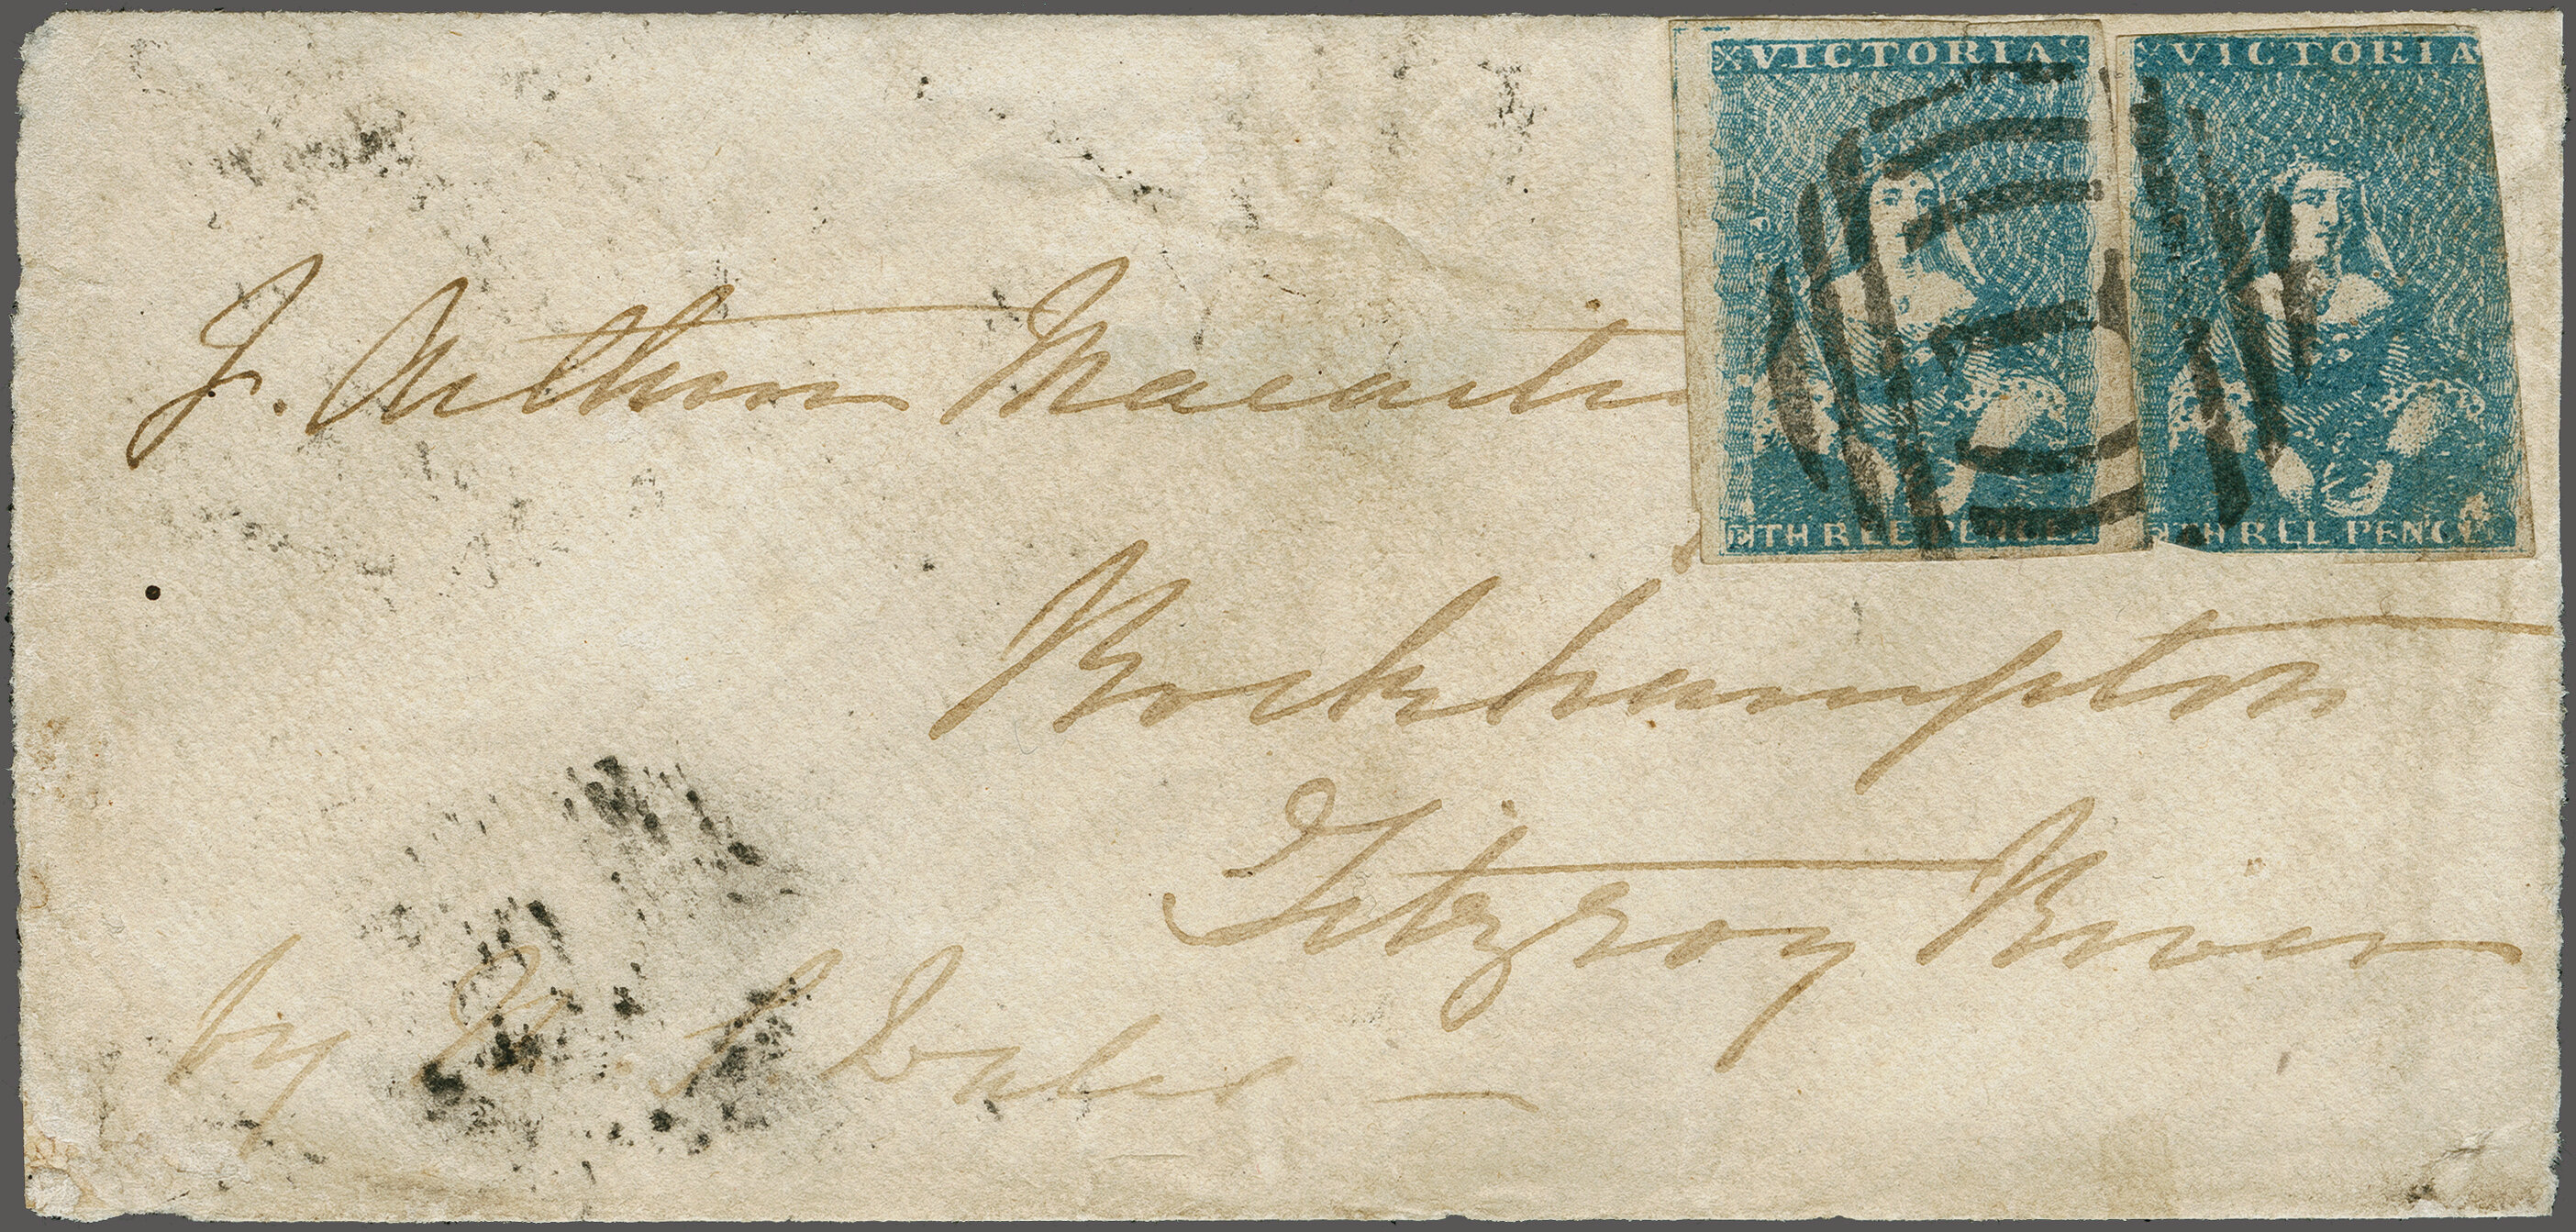 VICTORIA
THREE PENCE
VICTORIA
THREE PENCE
J. Arthur Macart
Rockhampton
Fitzroy River
by N. S. Wales